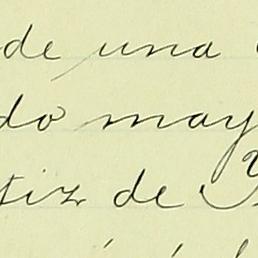 de una
do may
tiz de